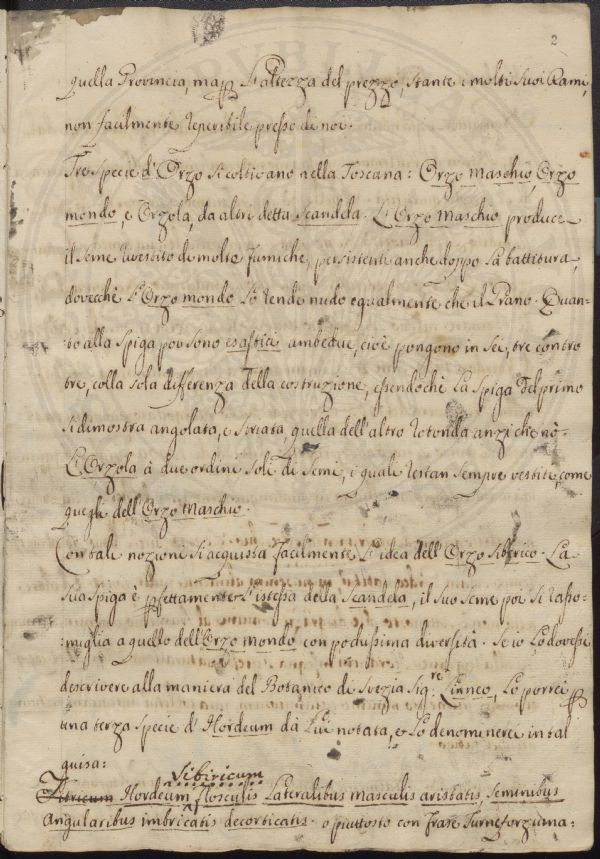 2
quella Provincia, ma p l'altezza del prezzo, stante i molti suoi Rami,
non facilmente reperibile presso di noi.
Tre specie d'Orzo si coltivano nella Toscana: Orzo maschio, Orzo
mondo, e Orzola, da altri detta Scandela. L'Orzo maschio produce
il seme rivestito di molte fumiche, persistenti anche doppo la battitura,
dovecchè l'Orzo mondo lo rende nudo egualmente che il Grano. Quan-
to alla spiga poi sono esastici ambedue, cioè pongono in sei, tre contro
tre, colla sola differenza della costruzione, essendochè la spiga del primo
si dimostra angolata, e striata, quella dell'altro rotonda anzi che nò.
L'Orzola à due ordini soli di semi, i quali restan sempre vestiti, come
quegli dell'Orzo maschio.
Con tali nozioni si acquista facilmente l'idea dell'Orzo siberico. La
sua spiga è pfettamente l'istessa della Scandela, il suo seme poi si rasso-
:miglia a quello dell'Orzo mondo con pochissima diversità. Se io lo dovesse
descrivere alla maniera del Botanico di Svezia Sig.re Linneo, lo porrei p
una terza specie d'Hordeum dà Lui notata, e lo denominerei in tal
guisa:
Sibiricum
Tritricum Hordeum flosculis lateralibus masculis aristatis, seminibus
angularibus imbricatis decorticatis. o piuttosto con frase Turneforziana: